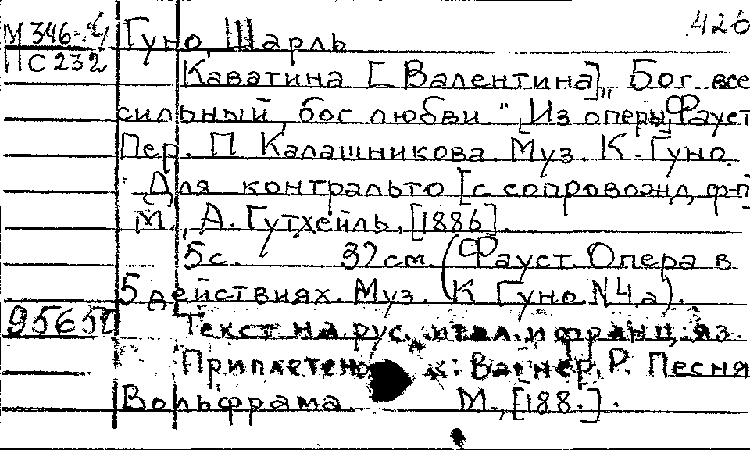 426
М 346-4/ Гуно, Шарль
ПС 232
Каватина [Валентина] „Бог все
сильный, бог любви". Из оперы „Фауст
Пер. П. Калашникова. Муз. К. Гуно.
Для контральто [с сопровожд. ф-п]
М., А. Гутхейль, [1886].
5 с. 32 см. (Фауст. Опера в
5 действиях. Муз. К. Гуно. N 4, а).
Текст на рус., итал. и франц. яз.
Приплетено к: Вагнер, Р. Песня
Вольфрама. М., [188.].